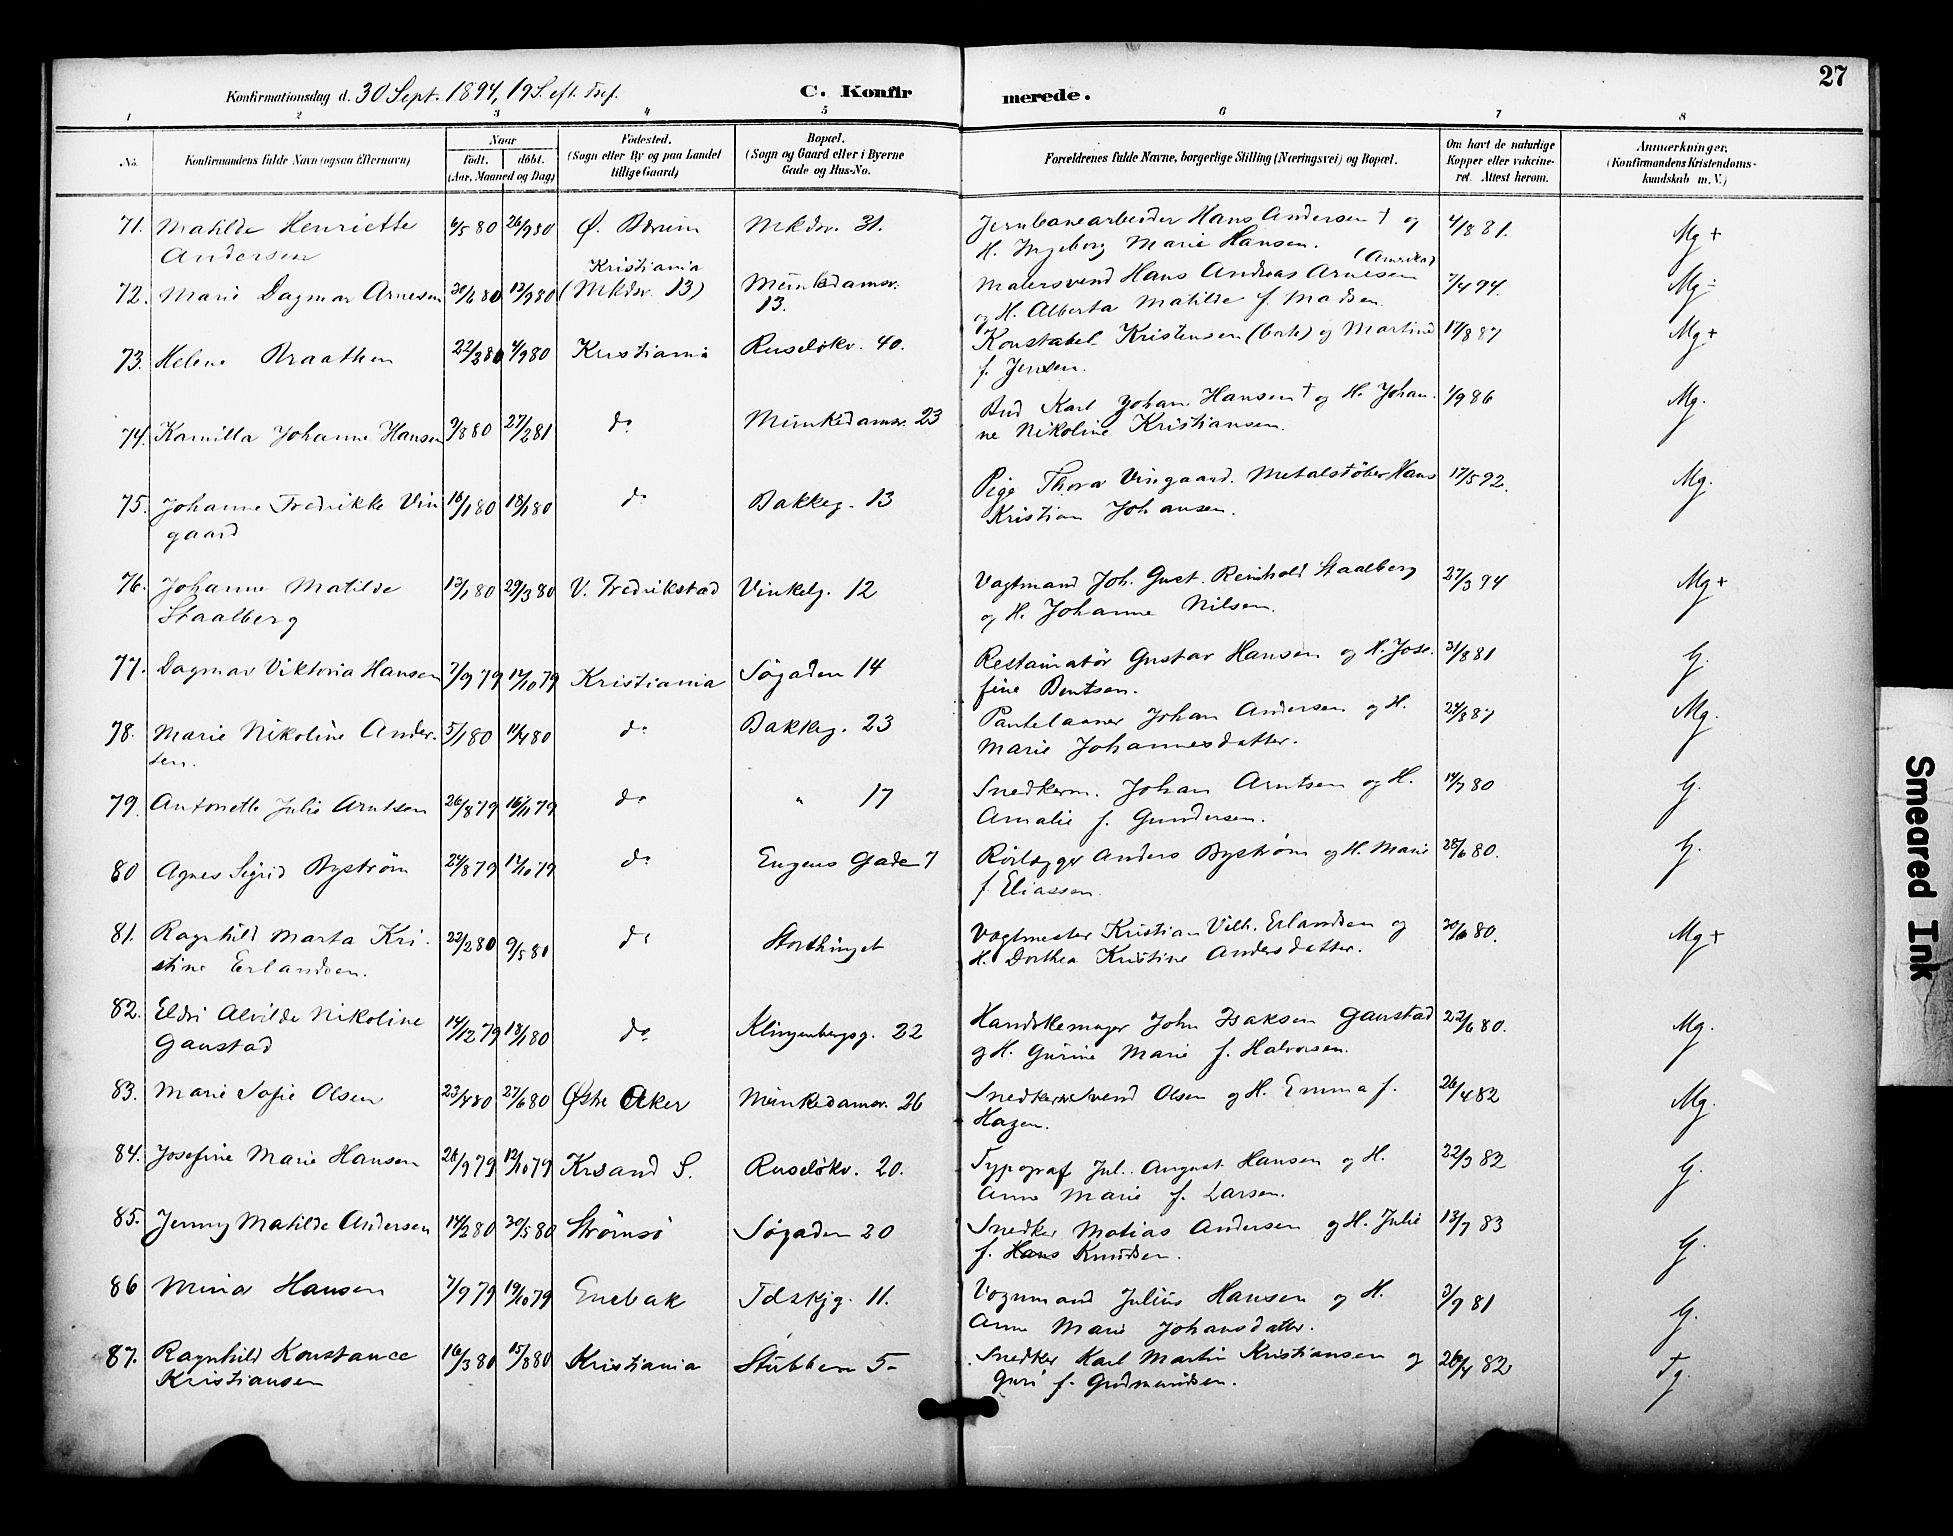 27
Konfirmationsdag d. 30 Sept. 1894, 19 S. eft. Tref.
C. Konfirmerede.
1 2 3 4 5 6 7 8
No. Konfirmandens fulde Navn (ogsaa Efternavn) Naar født. døbt. (Aar, Maaned og Dag) Fødested. (Sogn eller By og paa Landet tillige Gaard) Bopæl. (Sogn og Gaard eller i Byerne Gade og Hus-No. Forældrenes fulde Navne, borgerlige Stilling (Næringsvei) og Bopæl. Om havt de naturlige Kopper eller vaccineret. Attest herom. Anmærkninger. (Konfirmandens Kristendomskundskab m. V.)
71. Matilde Henriette 6/5 80 26/9 80 Ø. Bærum Mkdsv. 31. Jernbanearbeider Hans Andersen † og 4/8 81. Mg +
Andersen H. Ingeborg Marie Hansen.
72. Marie Dagmar Arnesen 30/6 80 12/9 80 Kristiania (Mkdsv. 13) Munkedamsv. 13. Malersvend Hans Andreas Arnesen (Amerika) 7/4 94. Mg ÷
og H. Alberta Matilde f. Madsen.
73. Helene Braathen 22/3 80 4/9 80 Kristiania Ruseløkv. 40. Konstabel Kristensen (borte) og Martine 17/8 87 Mg +
f. Jensen.
74. Kamilla Johanne Hansen 9/8 80 27/2 81 do Munkedamsv. 23 Bud Karl Johan Hansen † og H. Johan- 1/9 86 Mg.
ne Nikoline Kristiansen.
75. Johanne Fredrikke Vin 16/1 80 18/1 80 do Bakkeg. 13 Pige Thora Vingaard. Metalstøber Hans 17/5 92. Mg.
gaard Kristian Johansen.
76. Johanne Matilde 13/1 80 29/3 80 V. Fredrikstad Vinkelg. 12 Vagtmand Joh. Gust. Reinhold Staalberg 27/3 94 Mg +
Staalberg og H. Johanne Nilsen.
77. Dagmar Viktoria Hansen 7/9 79 12/10 79 Kristiania Søgaden 14 Restauratør Gustav Hansen og H. Jose- 31/8 81 G.
fine Bentsen.
78. Marie Nikoline Ander- 5/1 80 11/4 80 do Bakkeg. 23 Pantelaaner Johan Andersen og H. 24/8 87 Mg.
sen. Marie Johannesdatter.
79. Antonette Julie Arntsen 26/8 79 16/11 79 do " 17 Snedkerm. Johan Arntsen og H. 14/7 80 G.
Amalie f. Gundersen.
80 Agnes Sigrid Byström 24/8 79 12/10 79 do Eugens Gade 7 Rørlægger Anders Byström og H. Marie 28/6 80. G.
f. Eliassen.
81. Ragnhild Marta Kri- 22/2 80 9/5 80 do Storthinget Vagtmester Kristian Vilh. Erlandsen og 30/6 80. Mg +
stine Erlandsen. H. Dorthea Kristine Andersdatter.
82. Eldri Alvilde Nikoline 14/12 79 18/1 80 do Klingenbergg. 22 Handskemager John Isaksen Ganstad 22/6 80. Mg.
Ganstad og H. Gurine Marie f. Halvorsen.
83. Marie Sofie Olsen 23/4 80 27/6 80 Østre Aker Munkedamsv. 26 Snedkersvend Olsen og H. Emma f. 26/4 82 Mg.
Hagen.
84. Josefine Marie Hansen 26/9 79 12/10 79 Krsand S. Ruseløkv. 20. Typograf Jul. August Hansen og H. 22/3 82 G.
Anne Marie f. Larsen.
85. Jenny Matilde Andersen 14/2 80 30/5 80 Strømsø Søgaden 20 Snedker Matias Andersen og H. Julie 13/7 83 G.
f. Hans Knudsen.
86 Mina Hansen 7/9 79 19/10 79 Enebak Tdskjg. 11. Vognmand Julius Hansen og H. 3/9 81 G.
Anne Marie Johansdatter.
87. Ragnhild Konstance 16/3 80 15/8 80 Kristiania Stubben 5- Snedker Karl Martin Kristiansen og 26/4 82 Tg.
Kristiansen Guri f. Gudmundsen.
Smeared Ink